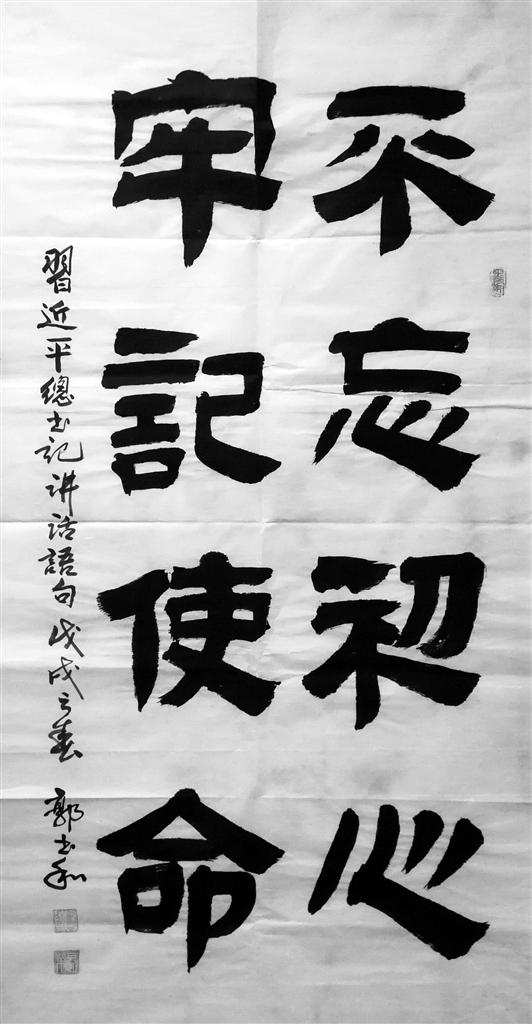 不忘初心
牢記使命
習近平總书記讲话語句戊戌之春 郭书和